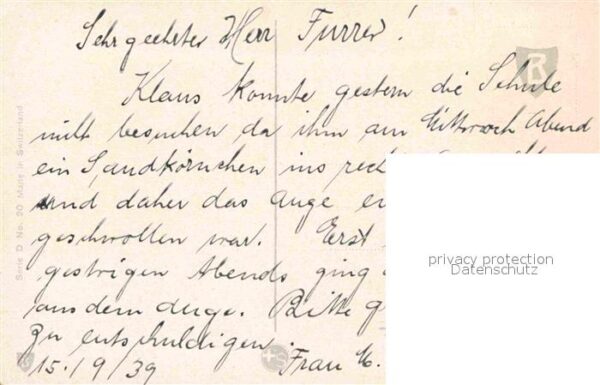 Sehr geehrter Herr Furrer!
Klaus konnte gestern die Schule
nicht besuchen da ihm am Mittwoch Abend
ein Sandkörnchen ins
und daher das Auge
geschwollen war. Erst
gestrigen Abends ging
aus dem Auge. Bitte
zu entschuldigen.
15./9/39 Frau M.
Serie D No. 20 Made in Switzerland
R
privacy protection
Datenschutz